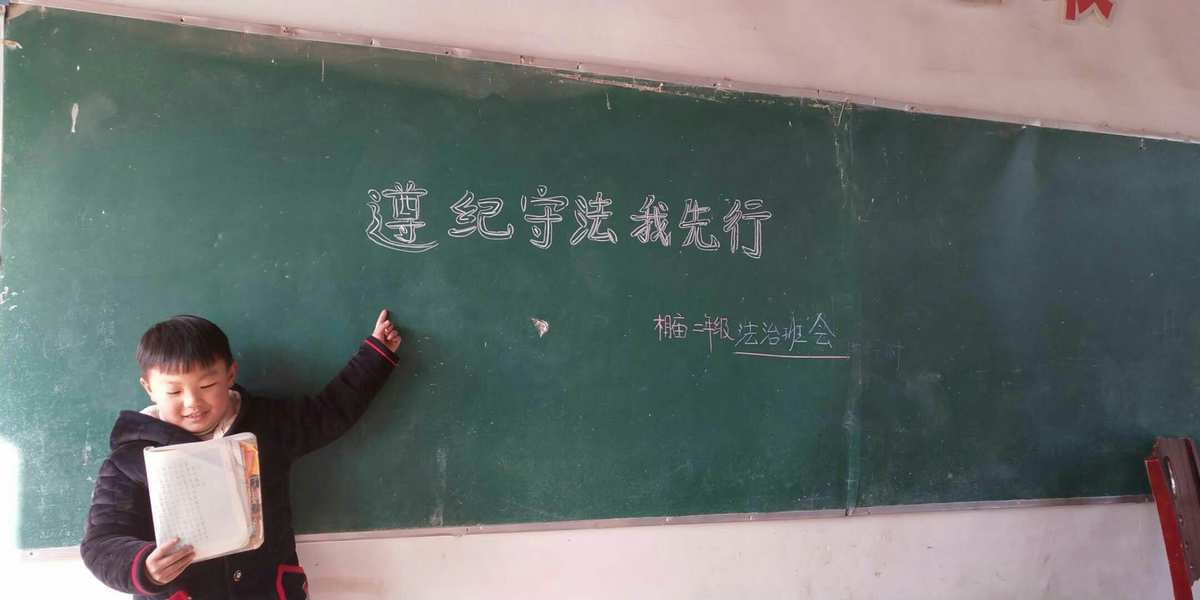 遵纪守法我先行
相庙二年级法治班会